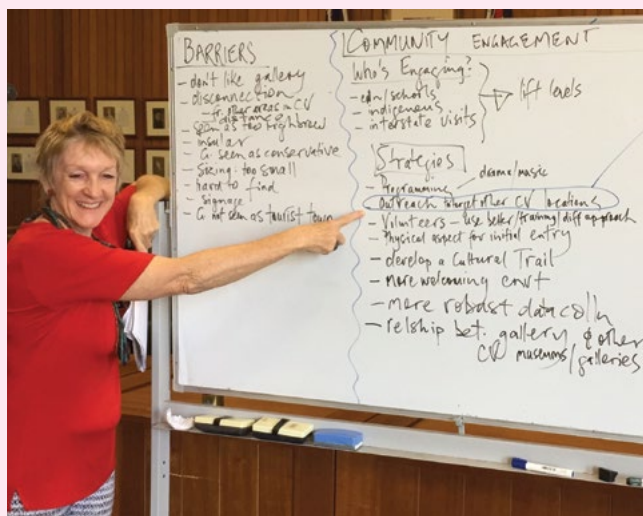 BARRIERS
- don't like gallery
- disconnection
- fr. other areas in CV
distance
- seen as too highbrow
- insular
- G. seen as conservative
- sizing: too small
- hard to find
- signage
- G not seen as tourist town
COMMUNITY ENGAGEMENT
Who's Engaging?
- edn/schools
- indigenous
- interstate visits
lift levels
Strategies
drama/music
- Programming
- Outreach to target other CV locations
- Volunteers - use better/training/diff approach
- Physical aspect for initial entry
- develop a Cultural Trail
- more welcoming envt
- more robust data colln
- relship bet. gallery & other
CV museums/galleries